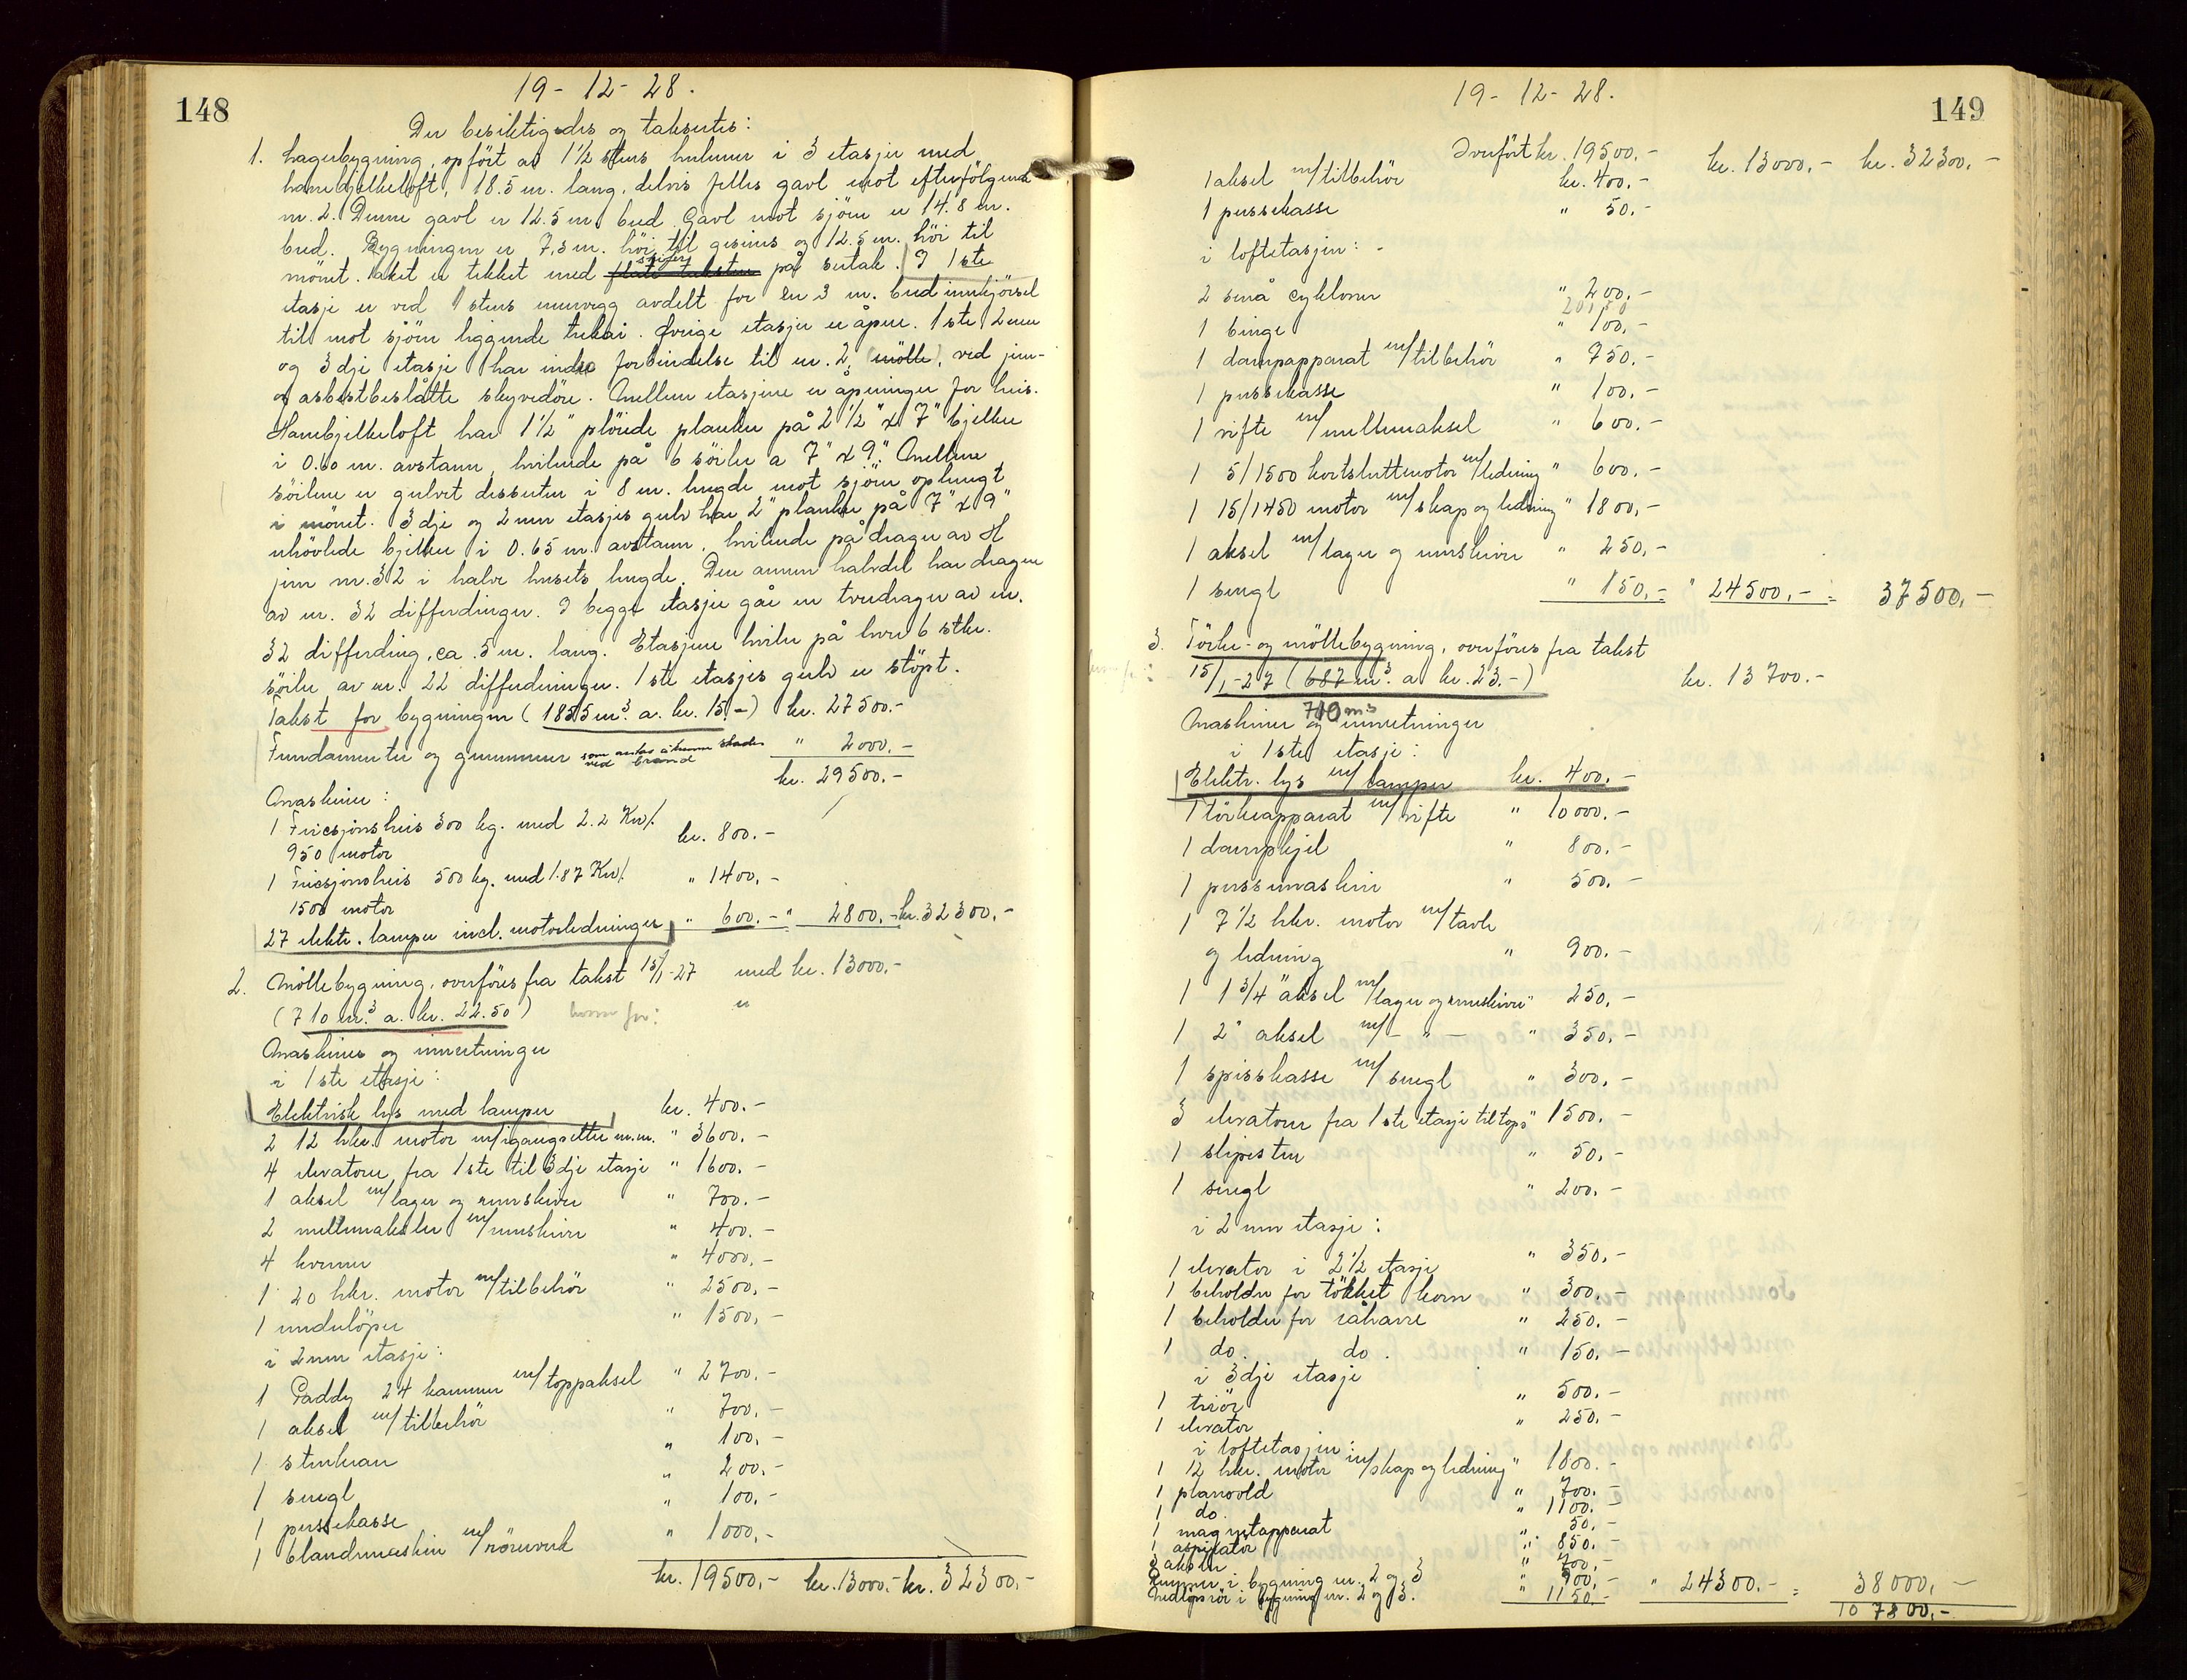 148
19-12-28.
Der besiktigedes og taksertes:
1. Lagerbygning, opført av 1½ stens hulmur i 3 etasjer med
hanebjelkeloft, 18.5 m. lang, delvis felles gavl mot efterfølgende
nr. 2. Denne gavl er 12.5 m. bred. Gavl mot sjøen er 14.8 m.
bred. Bygningen er 7.5 m. høi til gesims og 12.5 m. høi til
skifer
mønet. Taket er tekket med flate taksten på sutak. I 1ste
etasje er ved 1 stens murvegg avdelt for en 3 m. bred innkjørsel
til mot sjøen liggende trekai. Øvrige etasjer er åpne. 1ste, 2nen
og 3dje etasje har indre forbindelse til nr. 2, (mölle), ved jern-
og asbestbeslåtte skyvedöre. Mellem etasjene er åpninger for heis.
Hanebjelkeloft har 1½" plöiede planker på 2½" x 7" bjelker
i 0.60 m. avstann, hvilende på 6 söiler a 7" x 9". Mellem
söilene er gulvet dessuten i 8 m. lengde mot sjöen ophengt
i mönet. 3dje og 2nen etasjes gulv har 2" planker på 7" x 9"
uhövlede bjelker i 0.65 m. avstann, hvilende på drager av H
jern nr. 32 i halve husets lengde. Den annen halvdel har dragere
av nr. 32 differdinger. I begge etasjer går en tverdrager av nr.
32 differding, ca. 5 m. lang. Etasjene hviler på hver 6 stkr.
söiler av nr. 22 differdinger. 1ste etasjes gulv er stöpt.
Takst for bygningen (1855 m³. a. kr. 15.-) kr. 27500.-
Fundamenter og grunnmur som antas å kunne skades ved brand " 2000.-
kr. 29500.-
Maskiner:
1 Fricsjonsheis 300 kg. med 2.2 Kw/.
950 motor kr. 800.-
1 Fricsjonsheis 500 kg. med 1.87 Kw/.
1500 motor " 1400.-
27 elektr. lamper incl. motorledninger " 600.- " 2800.- kr. 32300.-
2. Möllebygning, overföres fra takst 15/1-27 med kr. 13000.-
(710 m³. a. kr. 22.50)
Maskiner og innretninger
i 1ste etasje:
Elektrisk lys med lamper kr. 400.-
2 12 hkr. motor m/igangsetter m.m. " 3600.-
4 elevatorer, fra 1ste til 3dje etasje " 1600.-
1 aksel m/lager og remskiver " 700.-
2 mellemaksler m/remskiver " 400.-
4 kverner " 4000.-
1 20 hkr. motor m/tilbehör " 2500.-
1 underlöper " 1500.-
i 2nen etasje:
1 Paddy 24 kammer m/toppaksel " 2700.-
1 aksel m/tilbehör " 700.-
1 stenkran " 100.-
1 snegl " 200.-
1 pussekasse " 100.-
1 blandemaskin m/röreverk " 1000.-
kr. 19500.- kr. 13000.- kr. 32300.-
149
19-12-28.
Overfört kr. 19500.- kr. 13000.- kr. 32300.-
1 aksel m/tilbehör kr. 400.-
1 pussekasse " 50.-
i loftetasjen:
2 små cykloner " 200.-
20150
1 binge " 100.-
1 dampapparat m/tilbehör " 750.-
1 pussekasse " 100.-
1 vifte m/mellemaksel " 600.-
1 5/1500 kortsluttmotor m/ledning " 600.-
1 15/1450 motor m/skap og ledning " 1800.-
1 aksel m/lager og remskiver " 250.-
1 snegl " 150.- " 24500.- = 37500.-
3. Törke- og möllebygning, overföres fra takst
15/1-27 (687 m³. a kr. 23.-) kr. 13700.-
710 m³
Maskiner og innretninger
i 1ste etasje:
Elektr. lys m/lamper kr. 400.-
1 törkeapparat m/vifte " 10000.-
1 dampkjel " 800.-
1 pussemaskin " 500.-
1 7½ hkr. motor m/tavle
og ledning " 900.-
1 1¾" aksel m/lager og remskiver " 250.-
1 2" aksel m/- " - " 350.-
1 spisskasse m/snegl " 300.-
3 elevatorer fra 1ste etasje til topp " 1500.-
1 slipesten " 50.-
1 snegl " 200.-
i 2nen etasje:
1 elevator i 2½ etasje " 350.-
1 beholder for törket korn " 300.-
1 beholder for råhavre " 250.-
1 do. do. " 150.-
i 3dje etasje
1 triör " 500.-
1 elevator " 250.-
i loftetasjen:
1 12 hkr. motor m/skap og ledning " 1800.-
1 plansold " 700.-
1 do. " 1100.-
1 magnetapparat " 50.-
1 aspiratör " 850.-
3 aksler " 700.-
Remmer i bygning nr. 2 og 3 " 900.-
Nedlöpsrör i bygning nr. 2 og 3. " 1150.- " 24300.- = 38000.-
107800.-